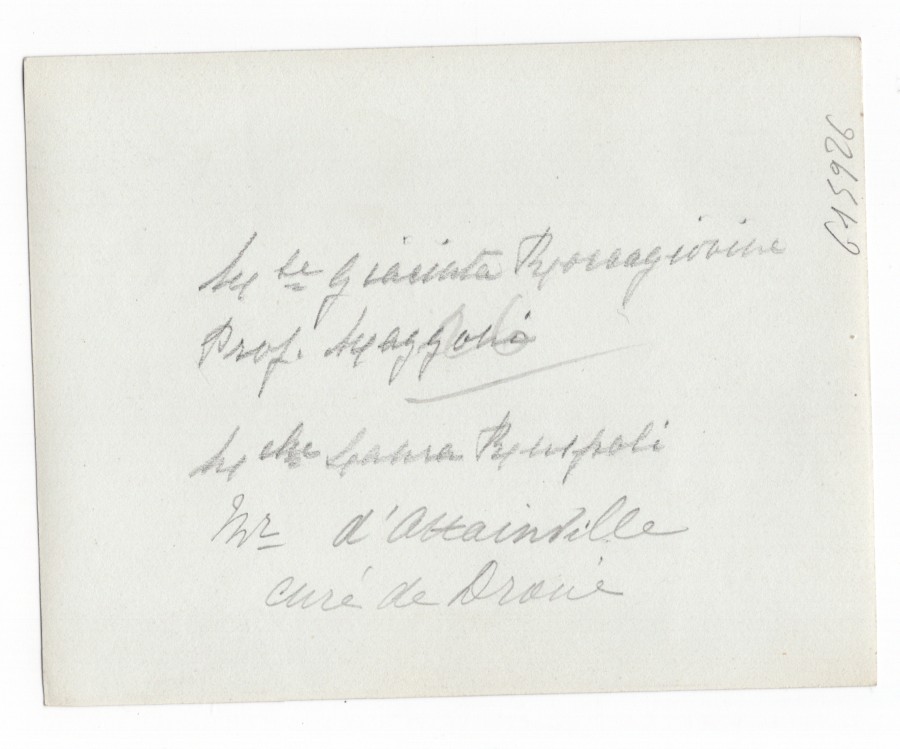 Mlle Giacinta Roccagiovine
Prof. Maggoni
Mche Laura Ruspoli
Mr d'Attainville
curé de Droué
615926